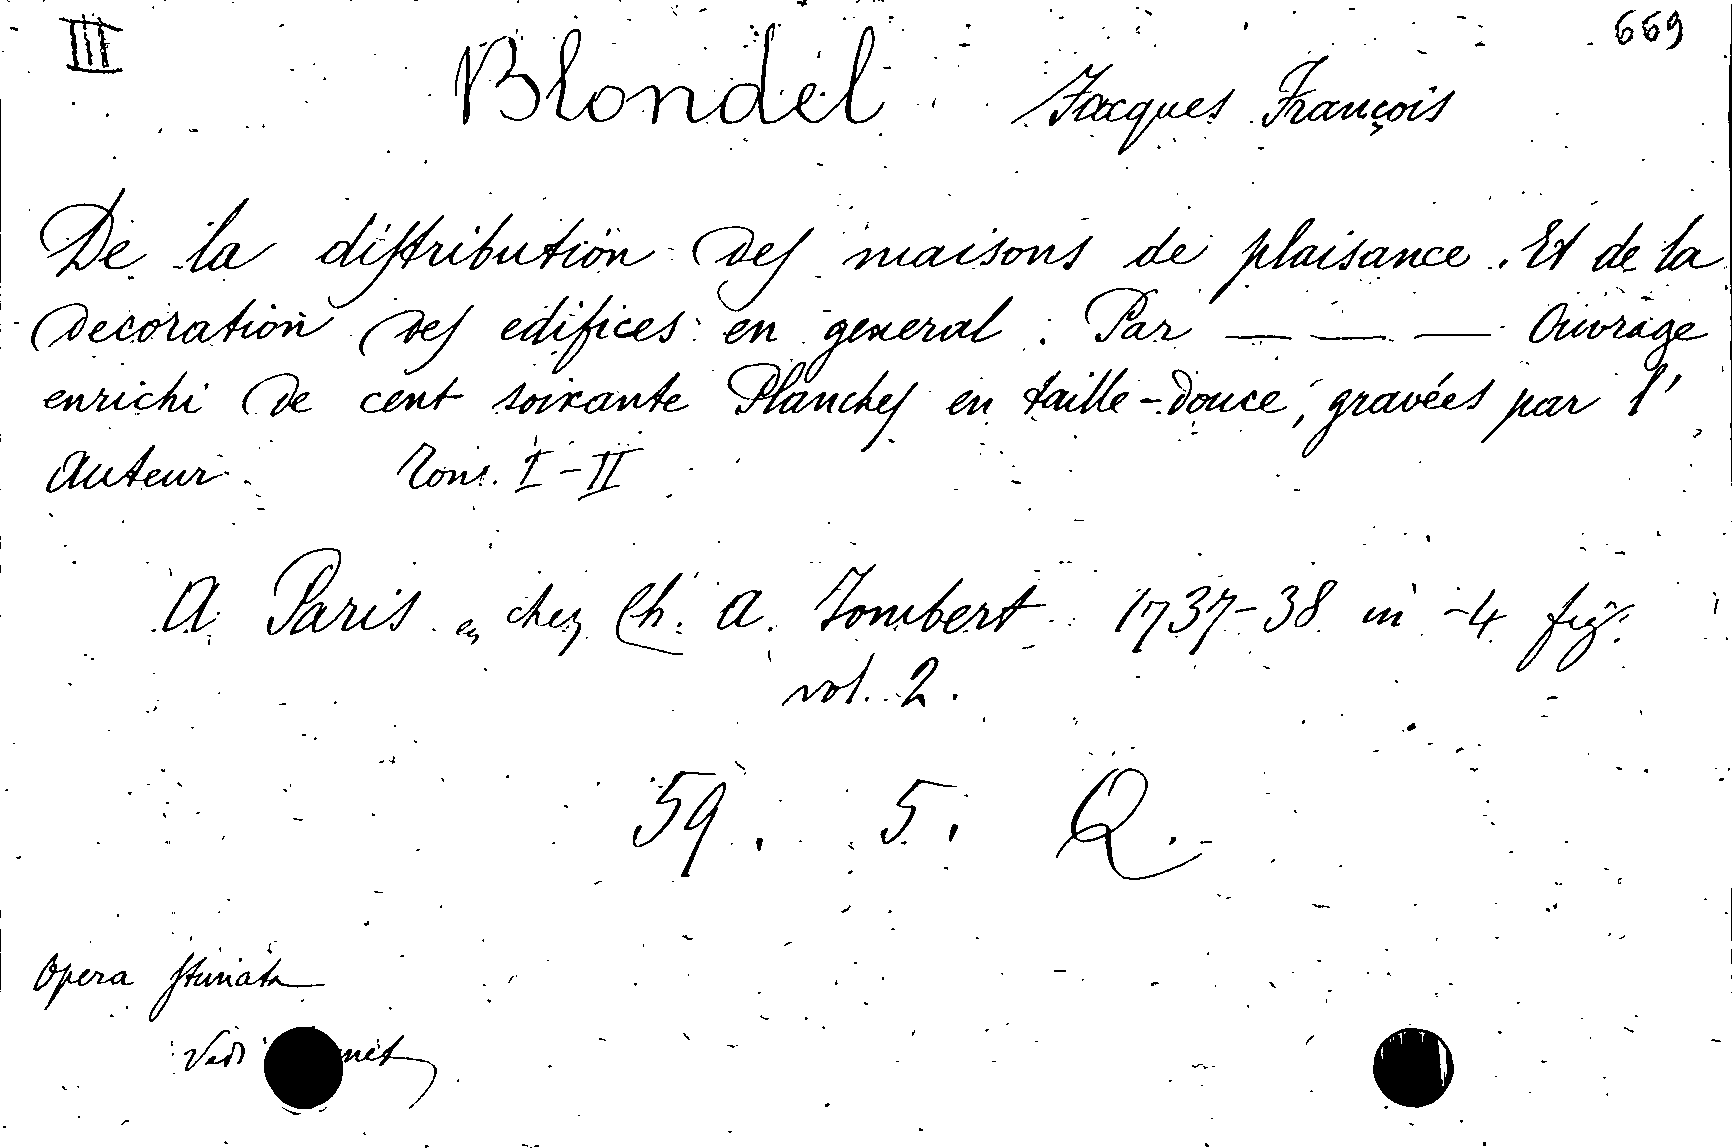 III
669
Blondel Jacques François
De la distribution des maisons de plaisance. Et de la
decoration des edifices en general. Par — — — Ouvrage
enrichi de cent soixante Planches en taille-douce, gravées par l'
auteur. Tom. I-II
A Paris chez Ch. A. Jombert 1737-38 in -4 fig.
vol. 2.
59. 5. Q.
Opera stimata
Vedi